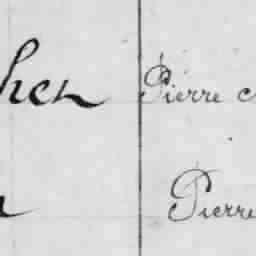 hen Pierre
Pierre